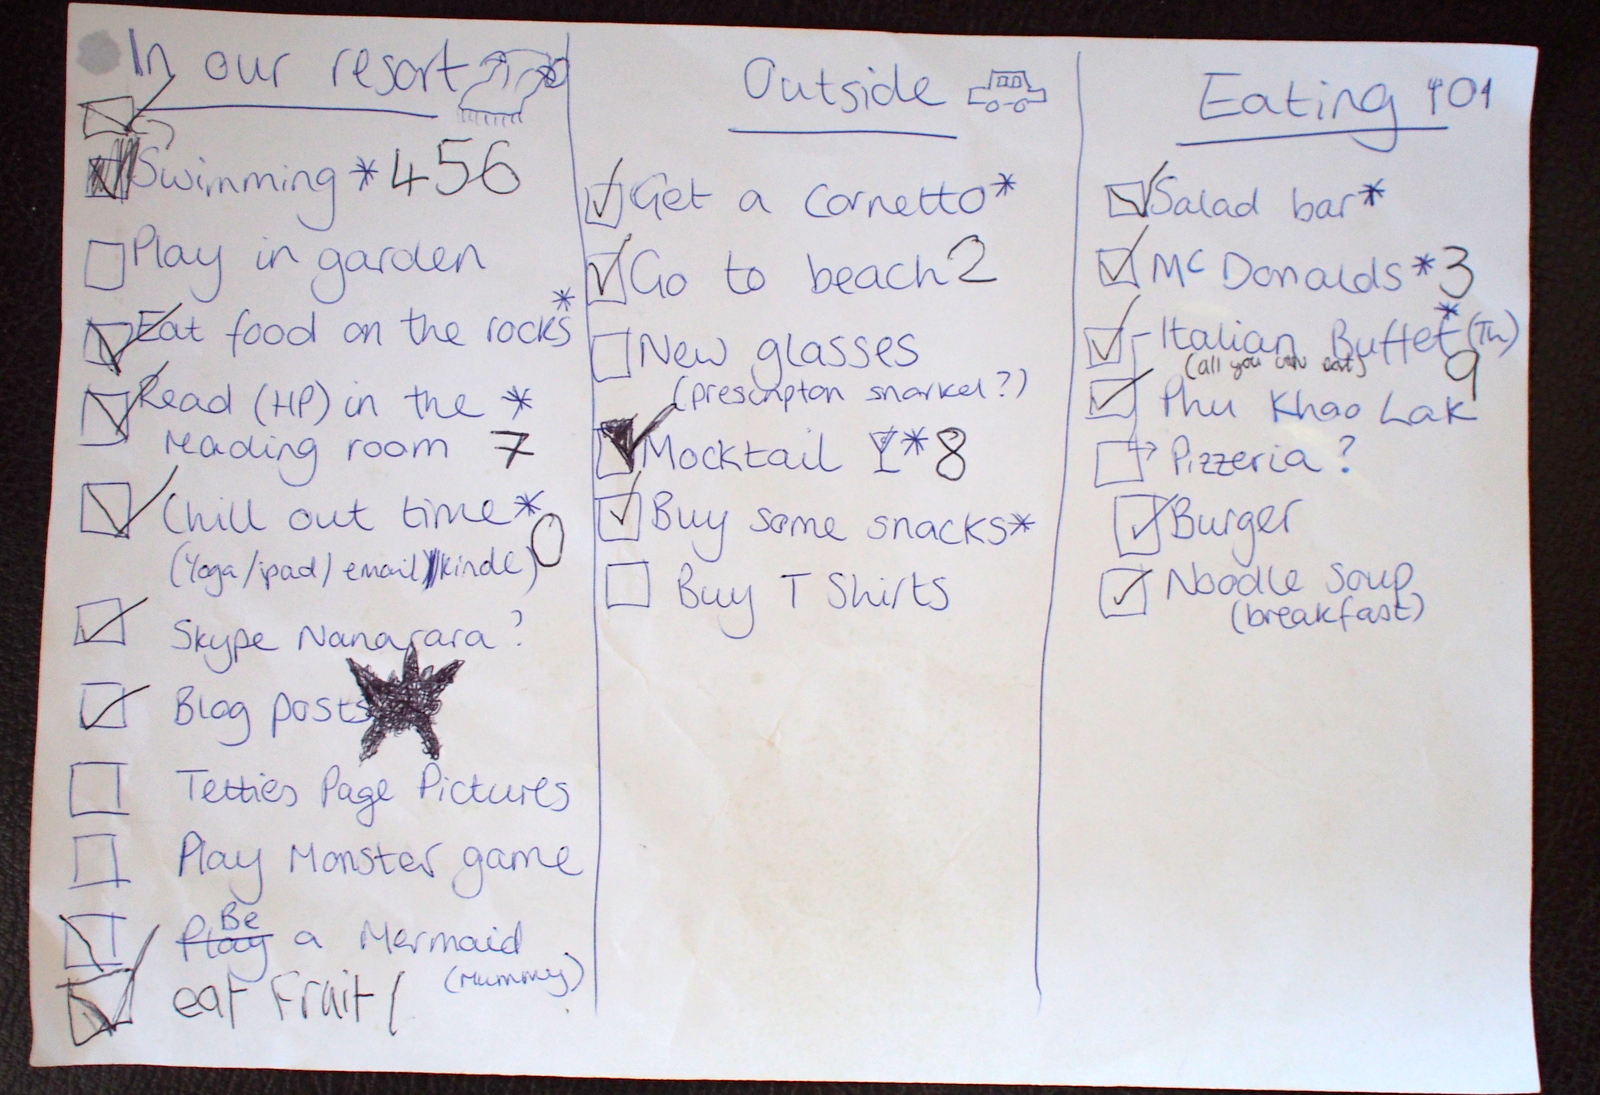 In our resort
Swimming * 4 5 6
Play in garden
Eat food on the rocks *
Read (HP) in the *
reading room 7
Chill out time * 0
(Yoga/ipad/email/kindle)
Skype Nanarara?
Blog posts
Tetties Page Pictures
Play Monster game
Play Be a Mermaid
(Mummy)
eat Fruit 1
Outside
Get a Cornetto *
Go to beach 2
New glasses
(prescripton snorkel?)
Mocktail * 8
Buy some snacks *
Buy T Shirts
Eating
Salad bar *
Mc Donalds * 3
Italian Buffet * (Th)
(all you can eat) 9
Phu Khao Lak
Pizzeria?
Burger
Noodle Soup
(breakfast)